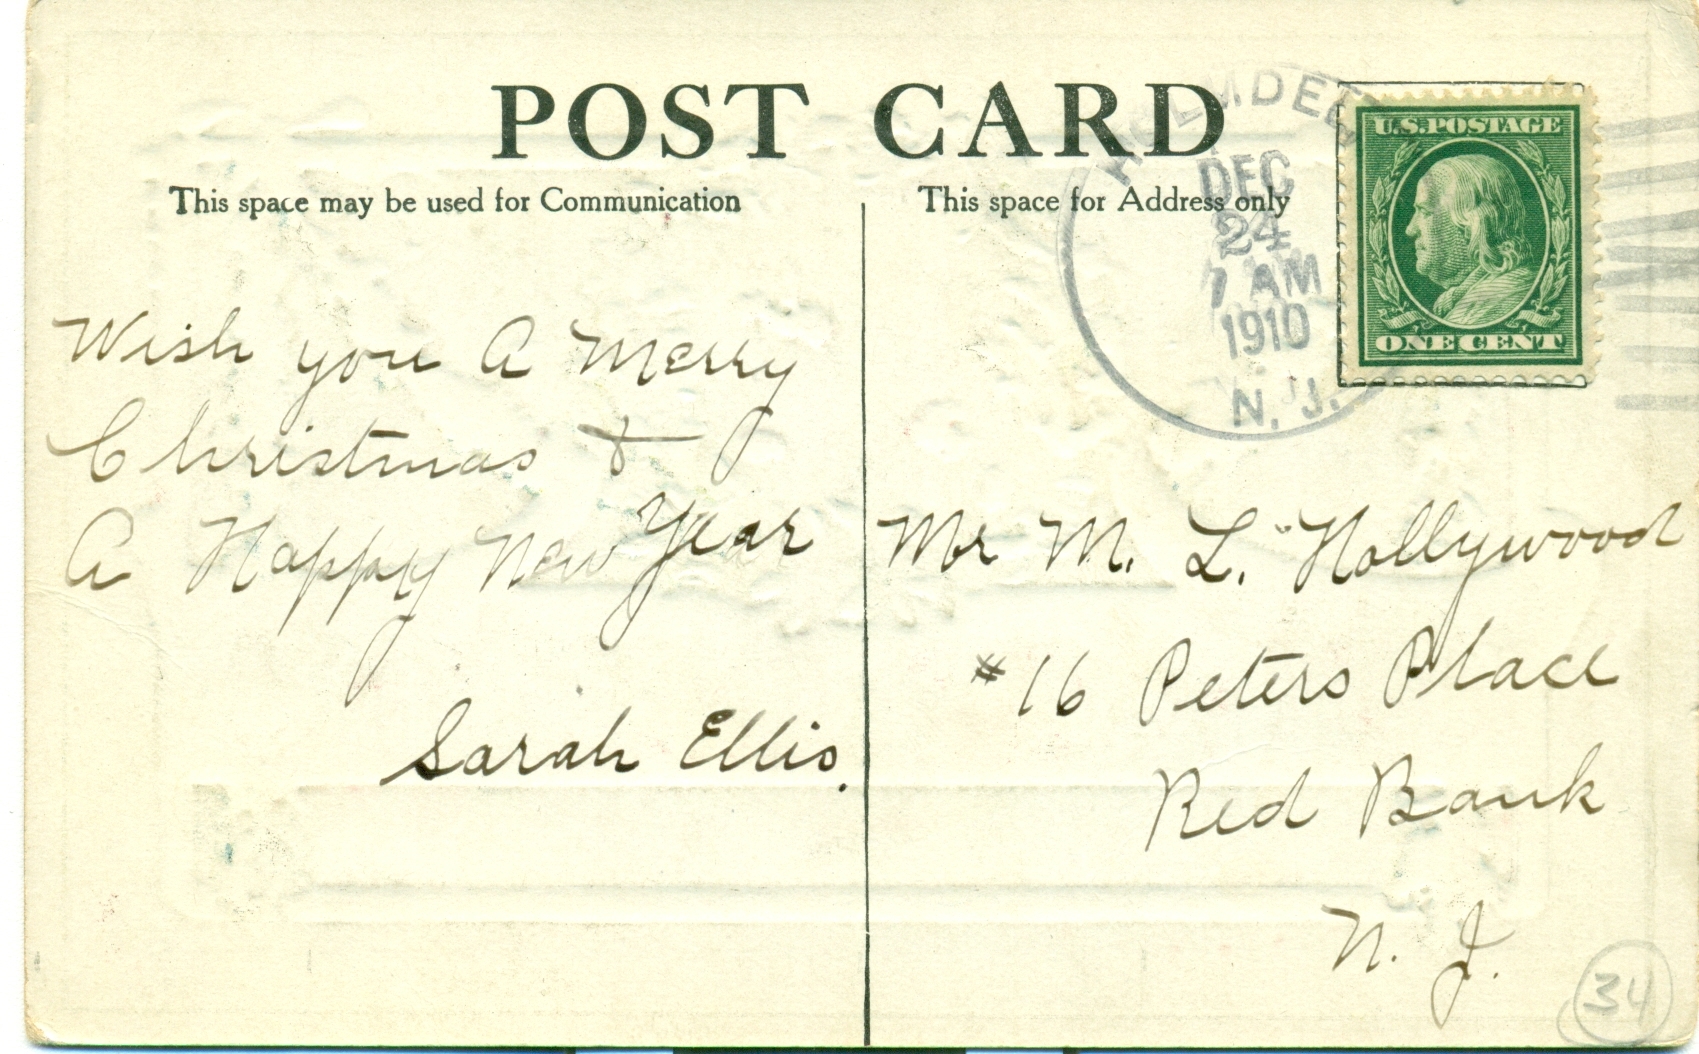 POST CARD
This space may be used for Communication
This space for Address only
HOLMDEL
DEC
24
7 AM
1910
N. J.
U.S. POSTAGE
ONE CENT
Wish you A Merry
Christmas &
A Happy New Year
Sarah Ellis.
Mr M. L. Hollywood
#16 Peters Place
Red Bank
N. J.
34